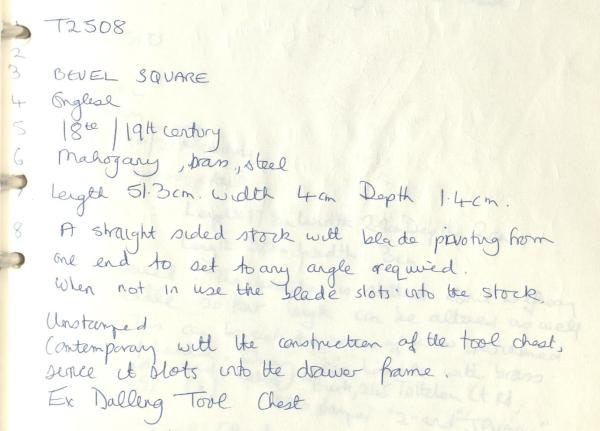 1 T2508
2
3 BEVEL SQUARE
4 English
5 18te / 19th century
6 Mahogany, brass, steel
7 Length 51.3cm. Width 4cm Depth 1.4cm.
8 A straight sided stock with blade pivoting from
one end to set to any angle required.
When not in use the blade slots into the stock.
Unstamped
Contemporary with the construction of the tool chest,
since it slots into the drawer frame.
Ex Dalling Tool Chest